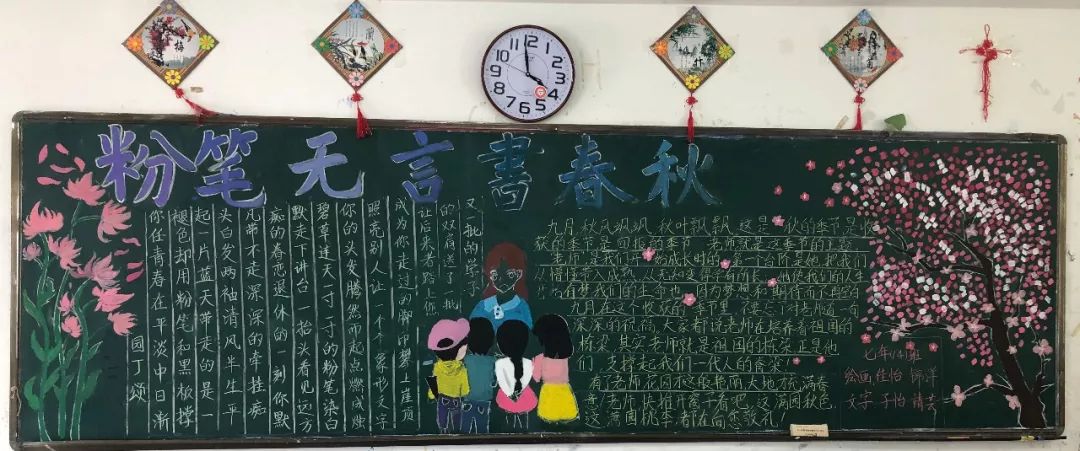 粉笔无言書春秋
梅
蘭
竹
菊
12
1
2
3
4
5
6
7
8
9
10
11
园丁颂
你任青春在平淡中日渐
褪色却用粉笔和黑板撑
起一片蓝天带走的是一
头白发两袖清风半生平
凡带不走深深的牵挂痴
痴的眷恋退休的一刻你默
默走下讲台一抬头看见远方
碧草连天一寸寸的粉笔染白
你的头发腾然而起点燃成蜡
照亮别人让一个个象形文字
成为你走过的脚印攀上崖顶
让后来者踏上你
的双肩送了一批
又一批的学子
九月,秋风飒飒,秋叶飘飘,这是一秋的季节是收
获的季节是回报的季节,老师就是这季节的主题
老师,是我们平 的成长时的第一个台阶是她把我们
从 变得 她使我们的人生
有梦我们的生命也 因为梦想和期待而不
九月在这个收获的季节里,不要忘了对老师道一句
深深的祝福,大家都说老师在培养着祖国的
栋梁,其实老师就是祖国的栋梁正是他
们,支撑起我们一代人的
有了老师花园才这般艳丽大地才充满春
意!老师,快推开窗子看吧,这满园秋色,
这满园桃李,都在向您敬礼!
七年(4)班
绘画 佳怡 锦洋
文字 子怡 靖芸